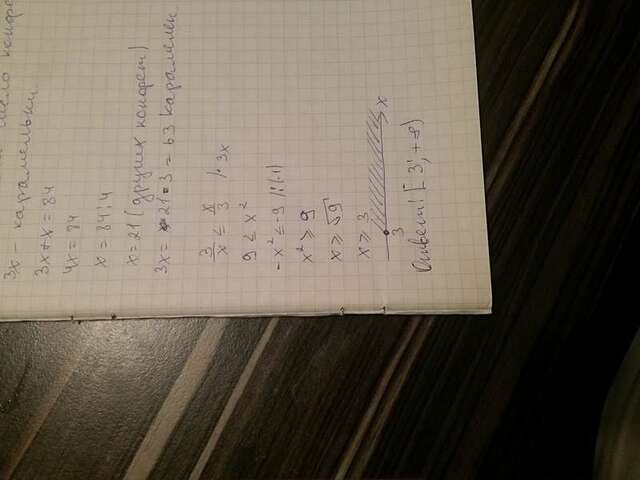 число конфе
3x – карамельки.
3x+x = 84
4x = 84
x = 84:4
x = 21 (других конфет)
3x = 21·3 = 63 карамелек
3/x ≤ x/3 /· 3x
9 ≤ x²
-x² ≤ -9 /:(-1)
x² ≥ 9
x ≥ √9
x ≥ 3
3 x
Ответ: [3; +∞)